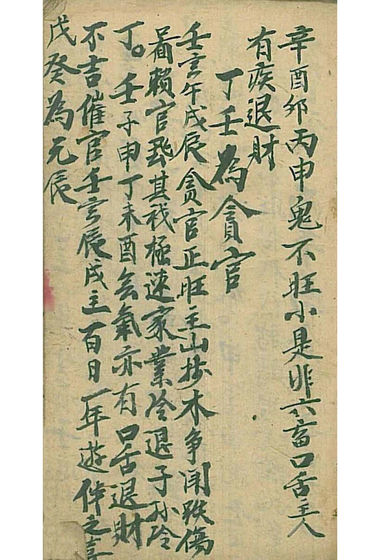 辛酉卯丙申鬼不旺小是非六畜口舌主人
有疾退財
丁壬為貪官
壬寅午戌辰貪官正旺主山林木争鬧跌傷
着賴官非其禍極速家業冷退子孫冷
丁。壬子申丁未酉会氣亦有口舌退財
不吉催官壬寅辰戌主一百日一年遊伴之喜
戊癸為元辰